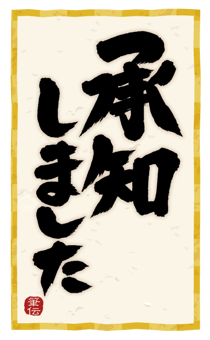 承知
しました
筆伝